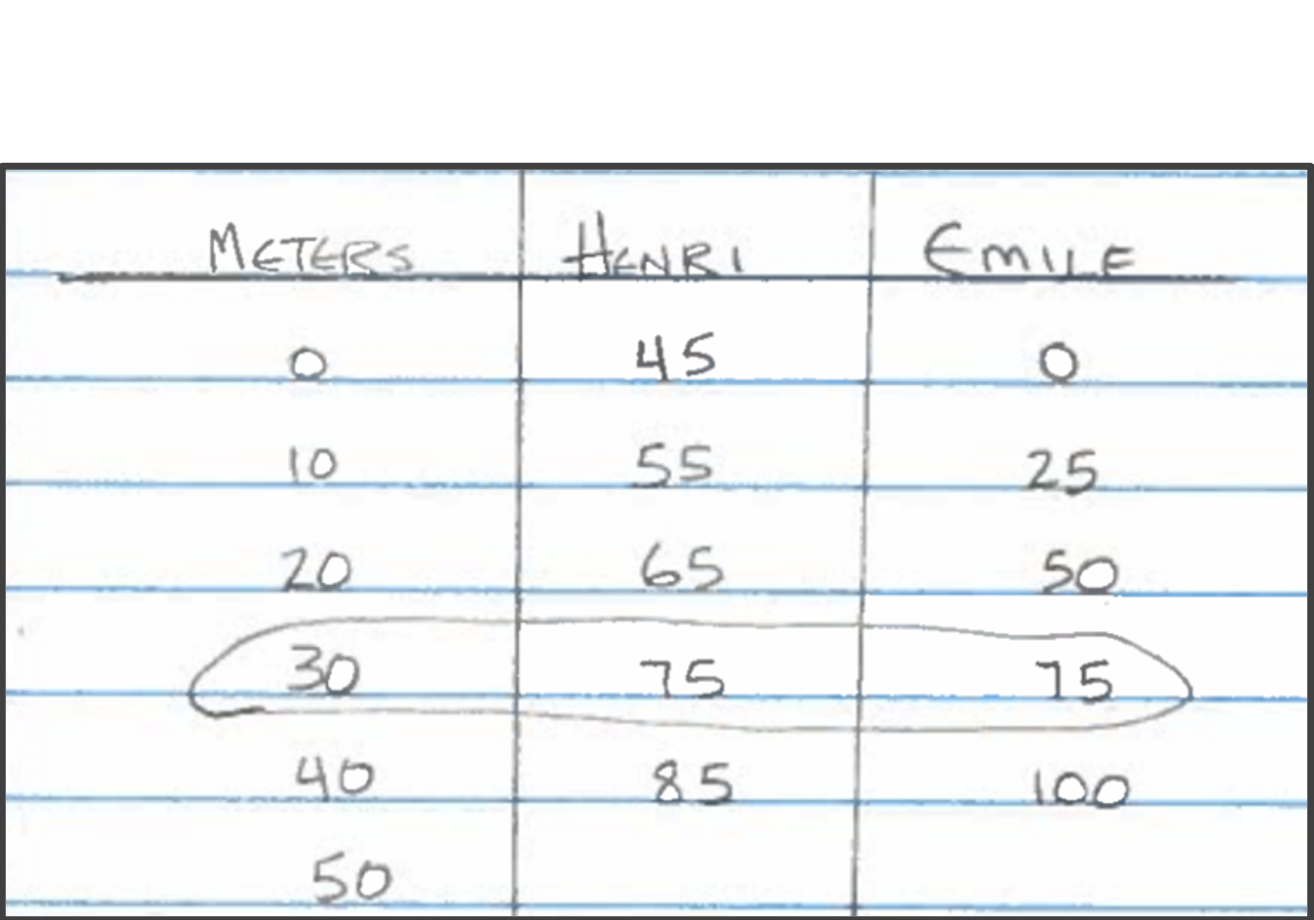 METERS HENRI EMILE
0 45 0
10 55 25
20 65 50
30 75 75
40 85 100
50